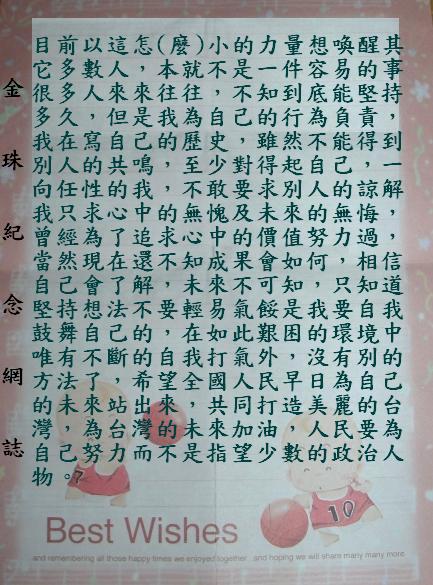 目前以這怎(麼)小的力量想喚醒其
它多數人，本就不是一件容易的事
很多人來來往往，不知到底能堅持
多久，但是我為自己的行為負責，
我在寫自己的歷史，雖然不能得到
別人的共鳴，至少對得起自己，一
向任性的我，不敢要求別人的諒解，
我只求心中的無愧及未來的無悔，
曾經為了追求心中的價值努力過，
當然現在還不知成果會如何，相信
自己會了解，未來不可知，只知道
堅持想法不要輕易氣餒，我要自我
鼓舞自己，在如此艱困的環境中
唯有不斷的自我打氣外，沒有別的
方法了，希望全國人民早日為自己
的未來站出來，共同打造美麗的台
灣，為台灣的未來加油，人民要為
自己努力而不是指望少數的政治人
物。
金珠紀念網誌
10
Best Wishes
and remembering all those happy times we enjoyed together...and hoping we will share many many more